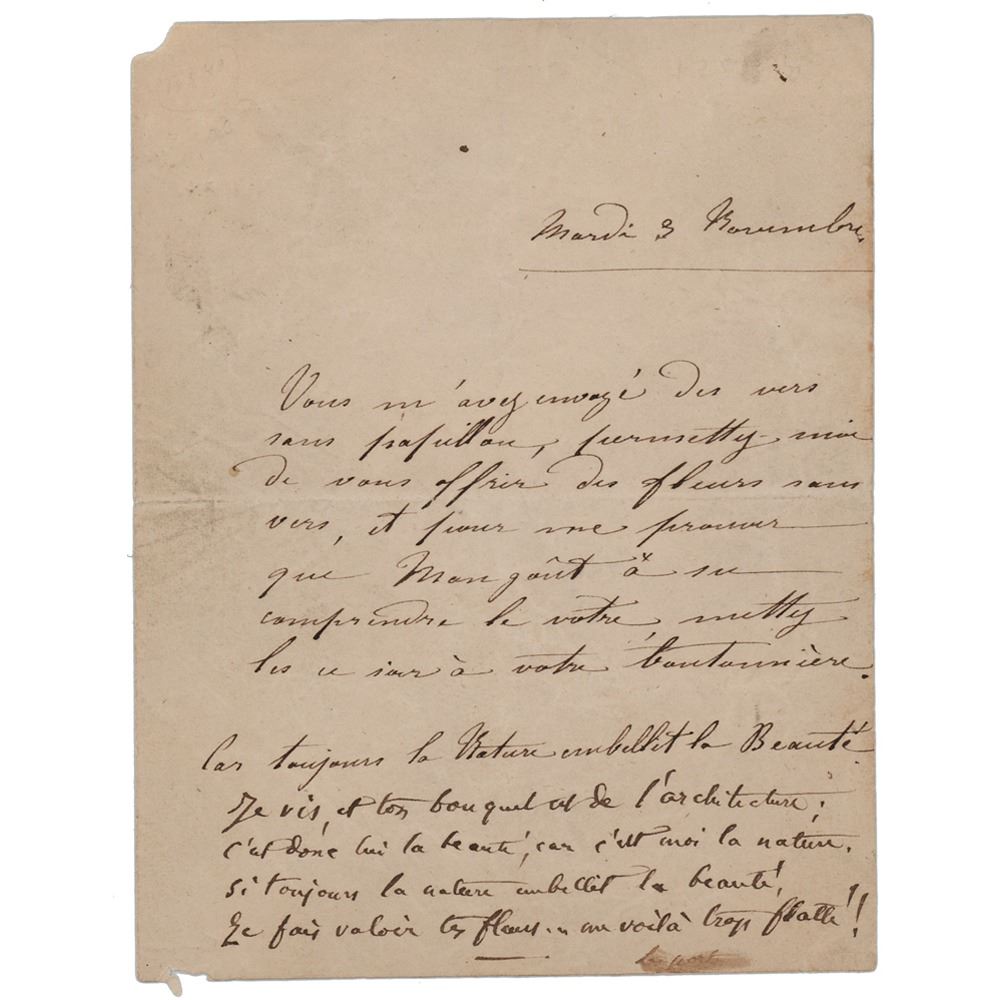 Mardi 3 Novembre
Vous m'avez envoyé des vers
sans papillon, permettez-moi
de vous offrir des fleurs sans
vers, et pour me prouver
que Mon goût à su
comprendre le votre, mettez
les ce soir à votre boutonnière.
Car toujours la Nature embellit la Beauté
Je vis, et ton bouquet est de l'architecture:
c'est donc lui la beauté, car c'est moi la nature.
si toujours la nature embellit la beauté,
Je fais valoir tes fleurs... me voilà trop flatté!!